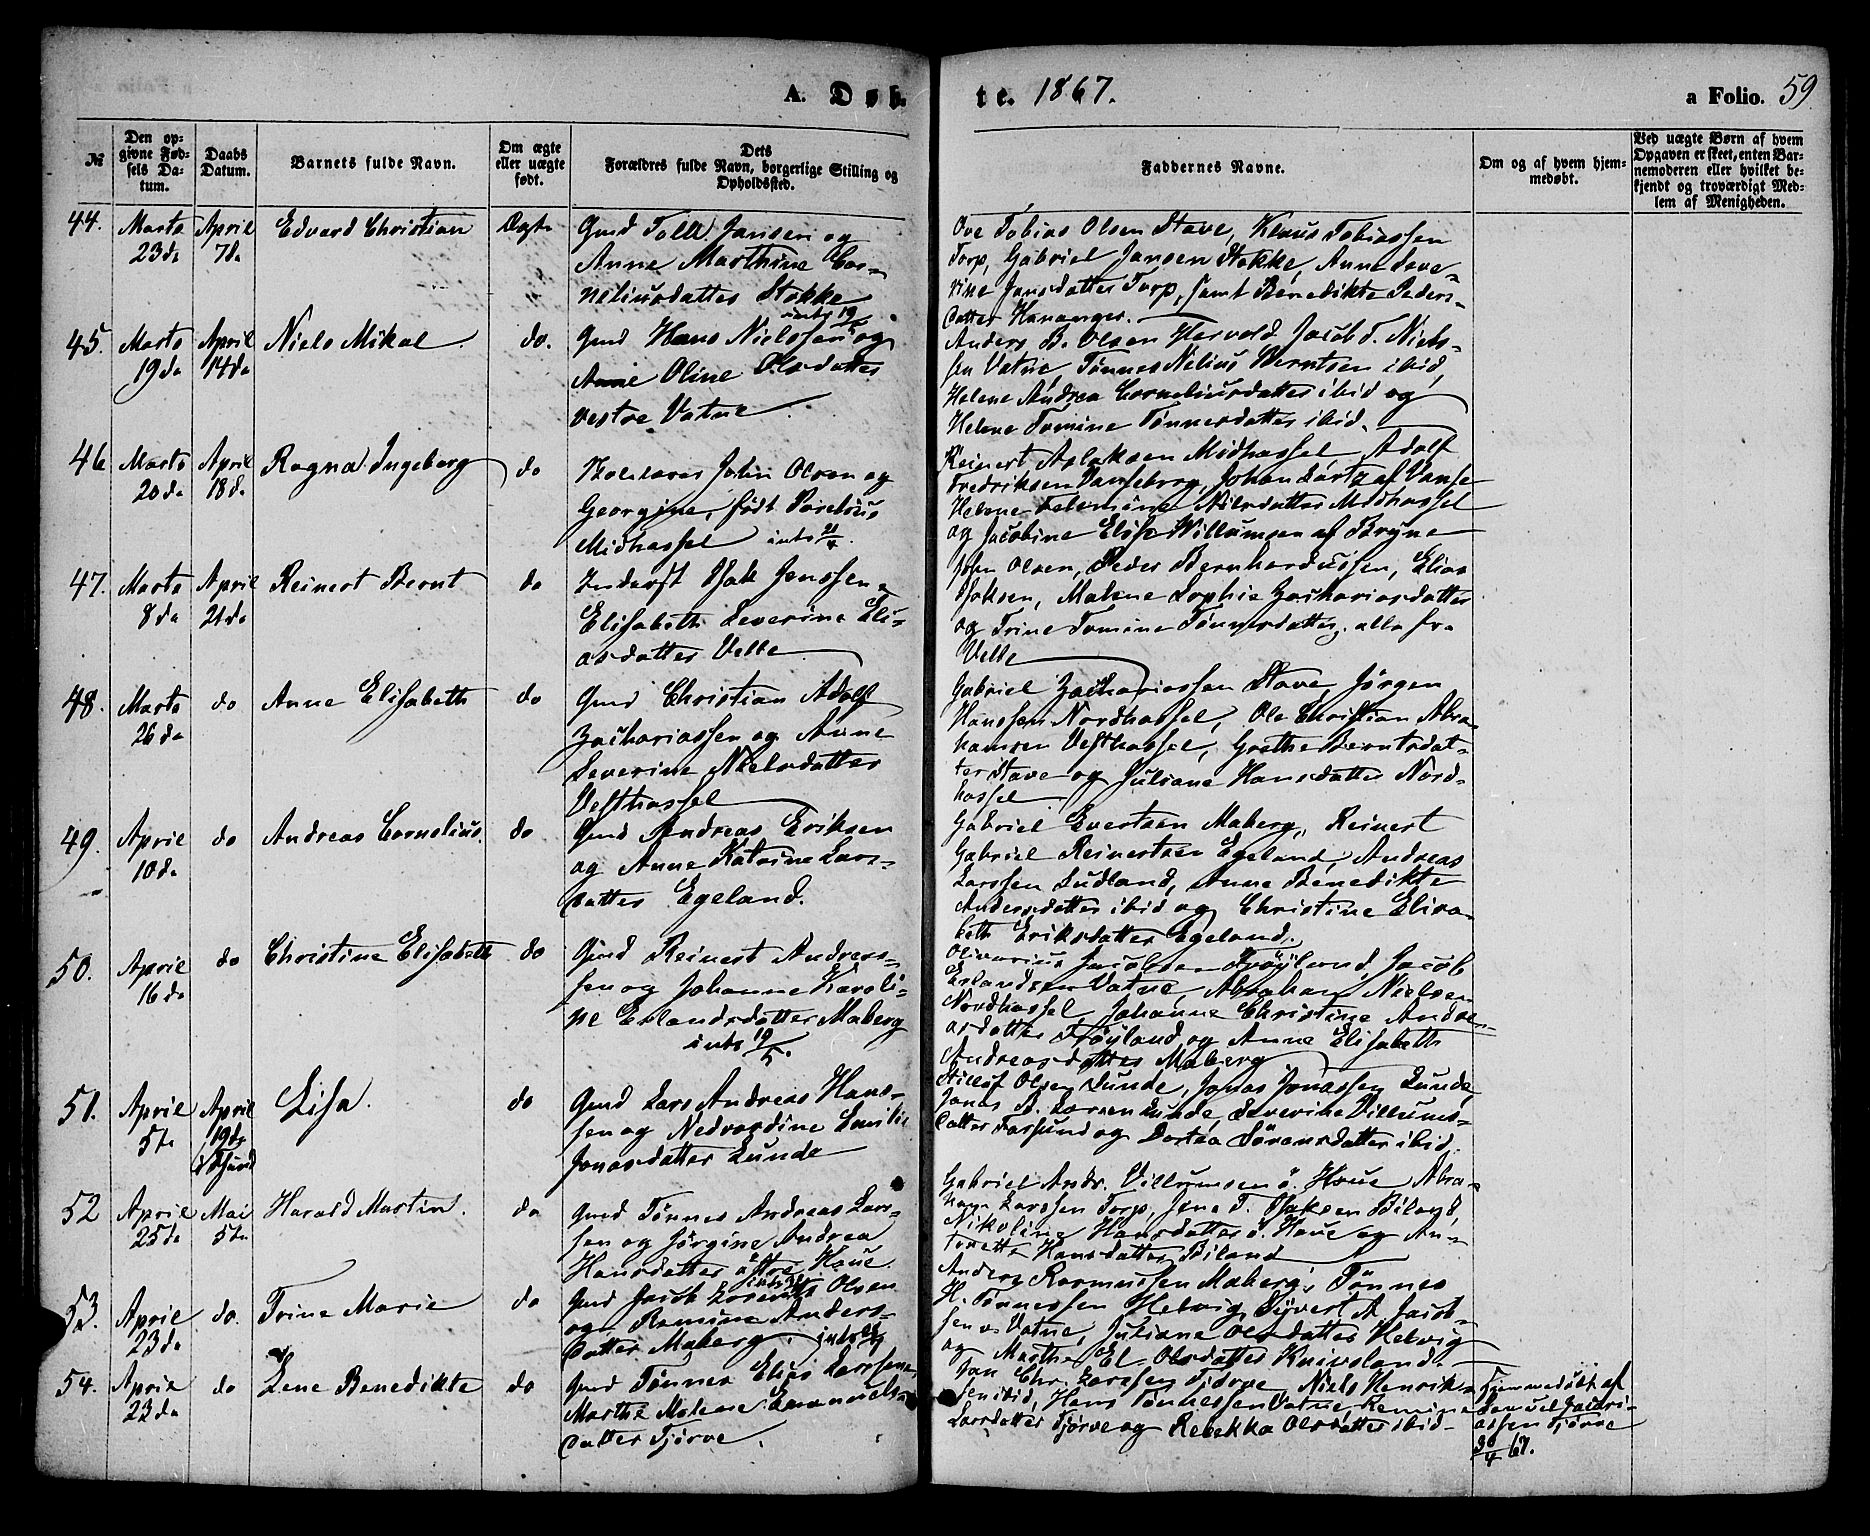 A. Døb-
te. 1867.
a Folio. 59
№
Den op-
givne Fød-
sels Da-
tum.
Daabs
Datum.
Barnets fulde Navn.
Om ægte
eller uægte
født.
Dets
Forældres fulde Navn, borgerlige Stilling og
Opholdssted.
Faddernes Navne.
Om og af hvem hjem-
medøbt.
Ved uægte Børn af hvem
Opgaven er skeet, enten Bar-
nemoderen eller hvilket be-
kjendt og troværdigt Med-
lem af Menigheden.
44.
Marts
23de
April
7de
Edvard Christian
Ægte
Gmd Tolle Jansen og
Anne Marthine Cor-
neliusdatter Stokke
Ove Tobias Olsen Stave, Klaus Tobiassen
Torp, Gabriel Jansen Stokke, Anne Seve-
rine Jansdatter Torp, samt Benedikte Peders-
datter Hananger.
45.
Marts
19de
April
14de
Niels Mikal
do.
Gmd Hans Nielssen og
Anne Oline Olsdatter
vestre Vatne
Anders B. Olsen Hervold, Jacob T. Niels-
sen Vatne, Tønnes Nilius Berntsen ibid,
Helene Andrea Corneliusdatter ibid og
Helene Tomine Tønnesdatter ibid.
46
Marts
20de
April
18de
Ragna Ingeborg
do
Skolelærer John Olsen og
Georgine, født
Midhassel intr 21/4.
Reinert Aslaksen Midhassel, Adolf
Fredriksen Vanseborg, Johan Lartz af Vanse
Helene Velemine Nilsdatter Midhassel
og Jacobine Elise Willumsen af Bryne
47.
Marts
8de
April
21de
Reinert Bernt
do
Inderst Isak Jenssen
Elisabeth Severine Eli-
asdatter Velle
John Olsen, Peder Bernhardussen, Elias
Isaksen, Malene Sophie Zachariasdatter
og Trine Tomine Tønnesdatter, alle fra
Velle
48.
Marts
26de
do
Anne Elisabeth
do
Gmd Christian Adolf
Zachariassen og Anne
Severine Nielsdatter
Vesthassel
Gabriel Zachariassen Stave, Jørgen
Hanssen Nordhassel, Ole Christian Abra-
hamsen Vesthassel, Grethe Berntsdat-
ter Stave og Juliane Hansdatter Nord-
hassel
49.
April
10de
do
Andreas Cornelius.
do
Gmd Andreas Eriksen
og Anne Katrine Lars-
datter Egeland.
Gabriel Evertsen Maberg, Reinert
Gabriel Reinertsen Egeland, Andreas
Larssen Ludland, Anne Benedikte
Andersdatter ibid og Christine Elisa-
beth Eriksdatter Egeland.
50.
April
16de
do
Christine Elisabeth
do
Gmd Reinert Andreas-
sen og Johanne Karoli-
ne Erlandsdatter Maberg
intr 19/5.
Olivarius Jacobsen Frøyland, Jacob
Erlandsen Vatne, Abraham Nielsen
Nordhassel, Johanne Christine Andre-
asdatter Frøyland og Anne Elisabeth
Andreasdatter Maberg
51.
April
5te
April
19de
i Ƒsund
Lisa.
do
Gmd Lars Andreas Hans-
sen og Nedvardine Emilie
Jonasdatter Lunde
Olsen Lunde, Jonas Jonassen Lunde
Jonas B. Larsen Lunde, Severine Villums-
datter Farsund og Dortea Sørensdatter ibid.
52
April
25de
Mai
5te
Harald Martin.
do
Gmd Tønnes Andreas Lars-
sen og Jørgine Andrea
Hansdatter østre Haue
Gabriel Andr. Villumsen ø. Haue, Abra-
ham Larssen Torp, Jens T. Isaksen Biland,
Nikoline Hansdatter ø. Haue og An-
Hansdatter Biland
53.
April
23de
do.
Trine Marie
do
Gmd Jacob Olsen
og Ramine Anders-
datter Maberg. intr
Anders Rasmussen Maberg, Tønnes
H. Tønnessen Helvig, Syvert A. Jacob-
sen v. Vatne, Juliane Olsdatter Helvig
og Marthe El. Olsdatter Kniusland.
54.
April
23de
do
Lene Benedikte
do
Gmd Tønnes Elias Larssen
Marthe Malene Emanuels-
datter Tjørve.
Jan Chr. Larssen Tjørve, Niels Henrik-
sen ibid, Hans Tønnessen Vatne, Ramine
Larsdatter Tjørve og Rebekka Olsdatter ibid.
Hjemmedøbt af
Samuel
Tjørve
30/4 67.